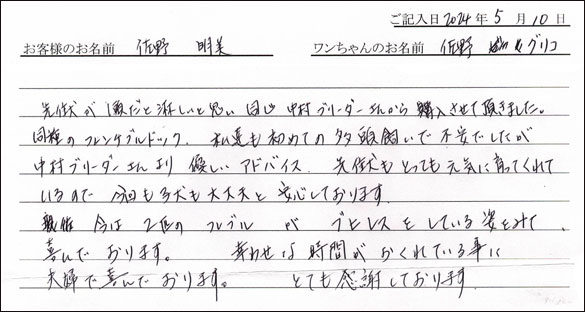 ご記入日 2024年 5月 10日
お客様のお名前 佐野 明美 ワンちゃんのお名前 佐野 グリコ
先住犬が1頭だと淋しいと思い同じ中村ブリーダーさんから購入させて頂きました。
同種のフレンチブルドック、私達も初めての多頭飼いで不安でしたが
中村ブリーダーさんより優しいアドバイス、先住犬もとっても元気に育ってくれて
いるので今回も子犬も大丈夫と安心しております。
今は2匹のフレブルがプロレスをしている姿をみて、
喜んでおります。幸わせな時間がおくれている事に
夫婦で喜んでおります。とても感謝しております